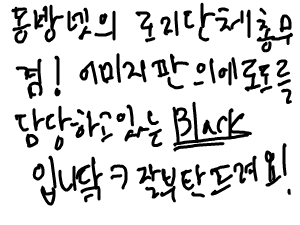 동방넷의 로리단체총무
겸! 이미지판의에로도를
담당하고있는 Black
입니닭ㅋ 잘부탄드려요!